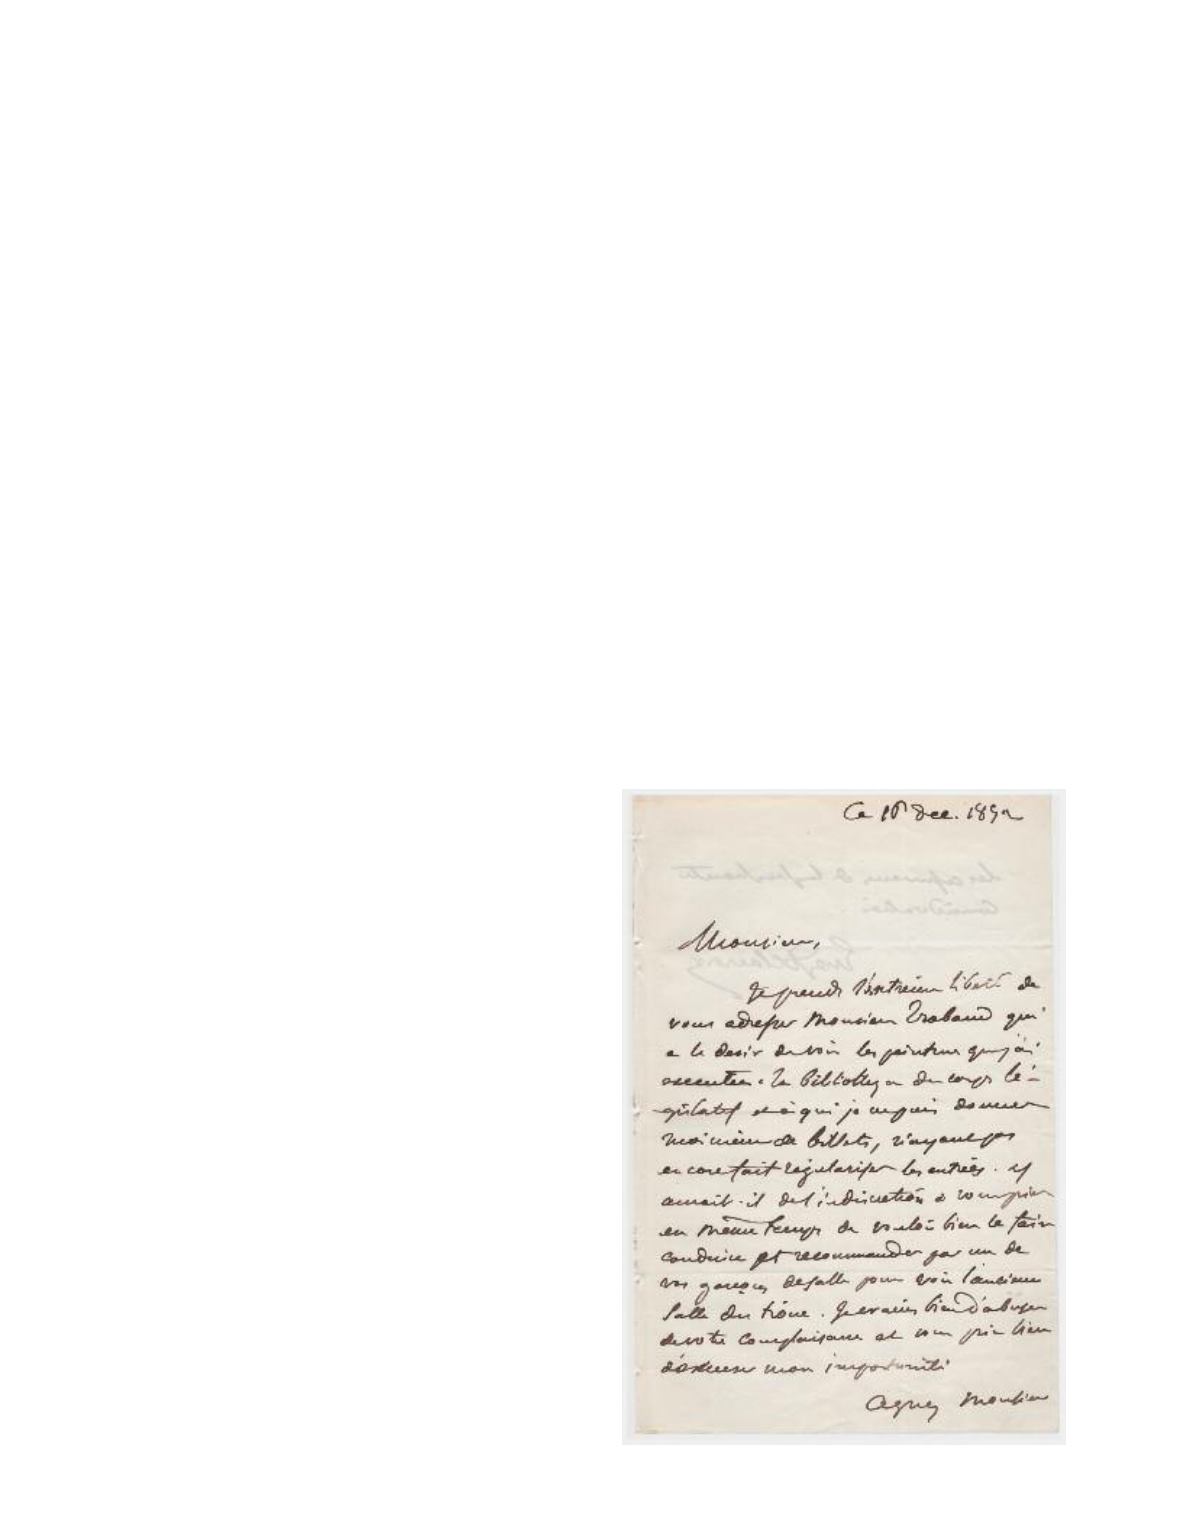 Ce 1er Dec. 1852
Monsieur,
Je prends l'extreme liberté de
vous adresser Monsieur Trabaud qui
a le desir de voir les peintures que j'ai
executées à la bibliotheque du corps lé-
gislatif et à qui je ne puis donner
moi même de billets, n'ayant pas
encore fait régulariser les entrées. Y
aurait-il de l'indiscretion à vous prier
en même temps de vouloir bien le faire
conduire et recommander par un de
vos garçons de salle pour voir l'ancienne
salle du trône. Je crains bien d'abuser
de votre complaisance et vous prie bien
d'excuser mon importunité
Agreez Monsieur